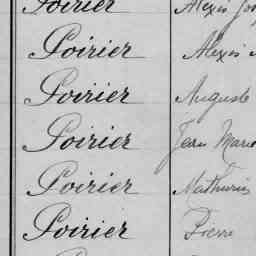 Poirier Alexis
Poirier Alexis
Poirier Auguste
Poirier Jean Marie
Poirier Mathurin
Poirier Pierre